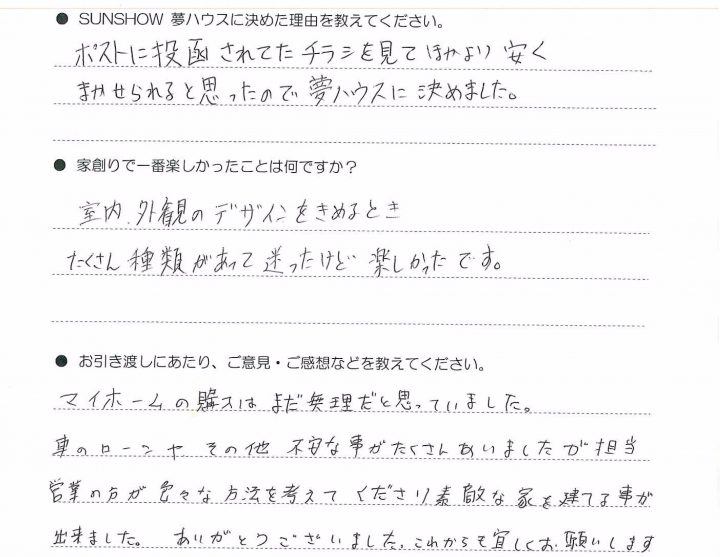 ● SUNSHOW 夢ハウスに決めた理由を教えてください。
ポストに投函されてたチラシを見てほかより安く
まかせられると思ったので夢ハウスに決めました。
● 家創りで一番楽しかったことは何ですか？
室内、外観のデザインをきめるとき
たくさん種類があって迷ったけど楽しかったです。
● お引き渡しにあたり、ご意見・ご感想などを教えてください。
マイホームの購入はまだ無理だと思っていました。
車のローンや その他 不安な事がたくさんありましたが担当
営業の方が色々な方法を考えてくださり素敵な家を建てる事が
出来ました。 ありがとうございました。これからも宜しくお願いします